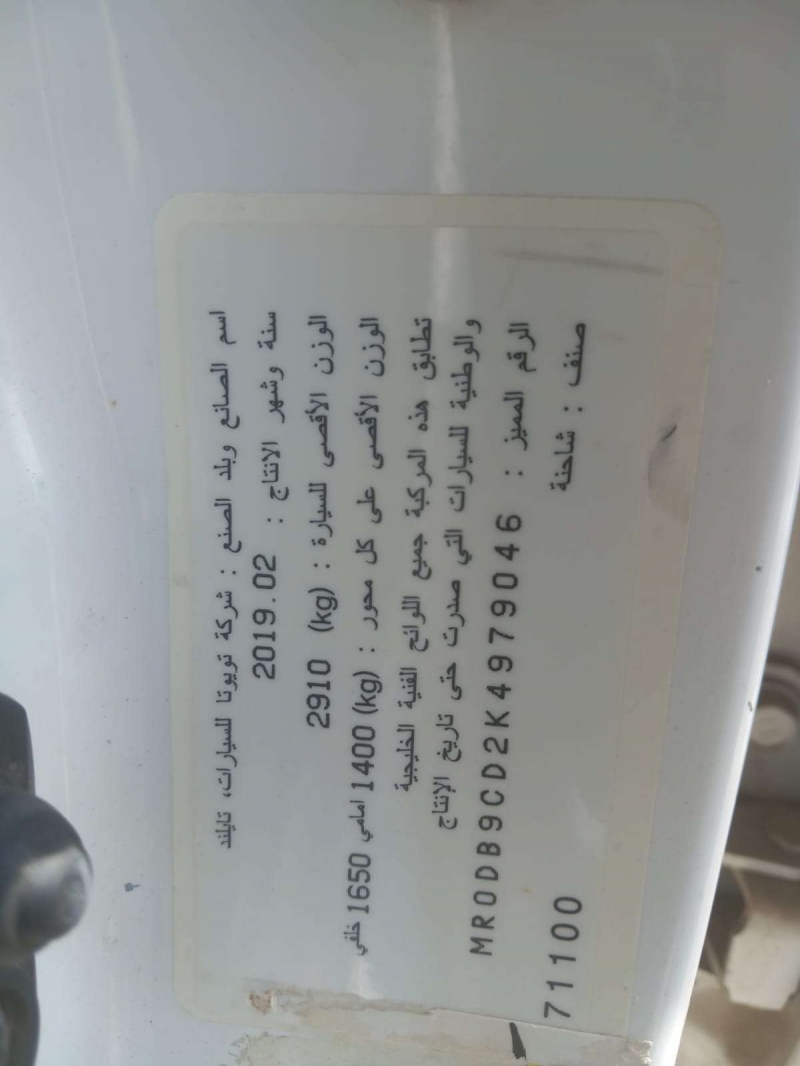 اسم الصانع وبلد الصنع : شركة تويوتا للسيارات، تايلند
سنة وشهر الانتاج : 2019.02
الوزن الأقصى للسيارة : (kg) 2910
الوزن الأقصى على كل محور : (kg) 1400 امامي 1650 خلفي
تطابق هذه المركبة جميع اللوائح الفنية الخليجية
والوطنية للسيارات التي صدرت حتى تاريخ الإنتاج
الرقم المميز : MR0DB9CD2K4979046
صنف : شاحنة
71100